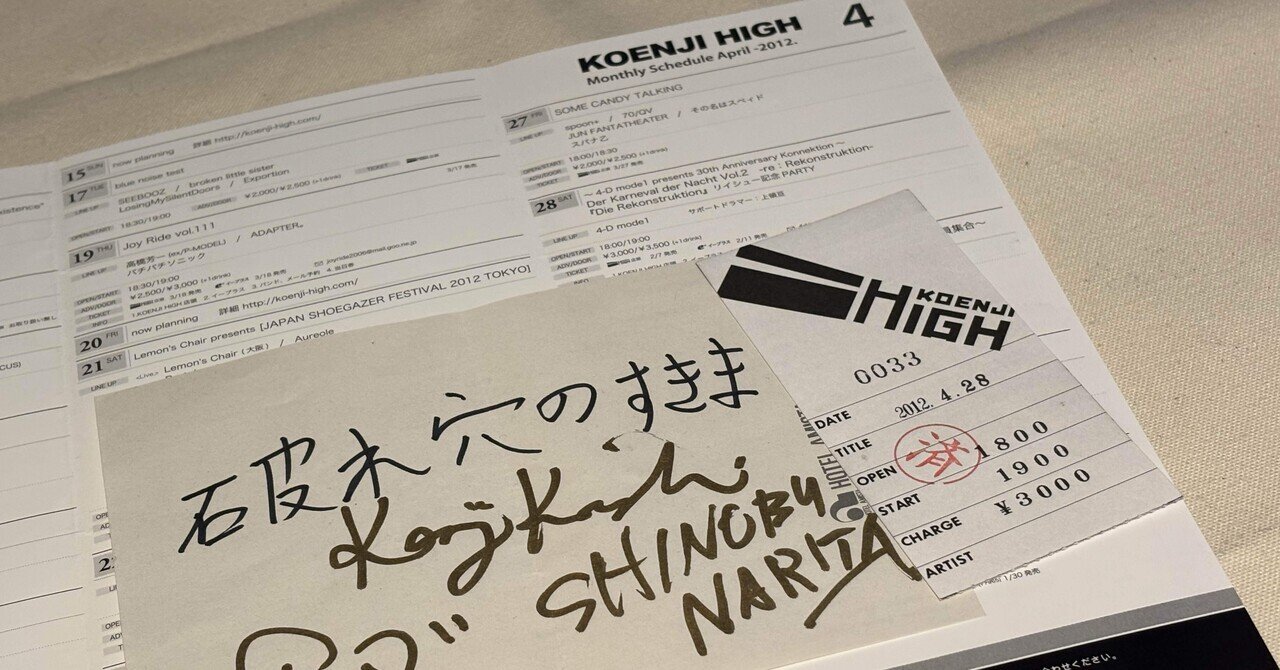 KOENJI HIGH 4
Monthly Schedule April -2012.
15 SUN now planning 詳細 http://koenji-high.com/
17 TUE blue noise test
LINE UP SEEBOOZ / broken little sister
LosingMySilentDoors / Exportion
OPEN/START 18:30/19:00 ADV/DOOR ¥2,000/¥2,500 (+1drink) TICKET 3/17 発売
19 THU Joy Ride vol.111
LINE UP 高橋芳一 (ex/P-MODEL) / ADAPTER。
パチパチソニック
OPEN/START 18:30/19:00
ADV/DOOR ¥2,500/¥3,000 (+1drink) joyride2006@mail.goo.ne.jp
TICKET 3/18 発売 3/18 発売 3.バンド、メール予約 4.当日券
INFO 1.KOENJI HIGH 店頭 2.イープラス
20 FRI now planning 詳細 http://koenji-high.com/
21 SAT Lemon's Chair presents [JAPAN SHOEGAZER FESTIVAL 2012 TOKYO]
LINE UP <Live> Lemon's Chair (大阪) / Aureole
27 FRI SOME CANDY TALKING
LINE UP spoon+ / 70/QV
JUN FANTATHEATER / その名はスペィド
スパナ乙
OPEN/START 18:00/18:30
ADV/DOOR ¥2,000/¥2,500 (+1drink)
TICKET 3/27 発売
28 SAT ～4-D mode1 presents 30th Anniversary Konnektion～
Der Karneval der Nacht Vol.2 -re : Rekonstruktion-
『Die Rekonstruktion』リイシュー記念 PARTY
LINE UP 4-D mode1 サポートドラマー:上領亘
OPEN/START 18:00/19:00
ADV/DOOR ¥3,000/¥3,500 (+1drink)
TICKET 2/7 発売 イープラス 2/11 発売
員集合～
KOENJI
HIGH
0033
DATE 2012. 4. 28
TITLE
OPEN 1800
START 1900
CHARGE ¥3000
ARTIST
破れ穴のすきま
Kenji Konishi
SHINOBU
NARITA
HOTEL
1/30 発売
わせください。